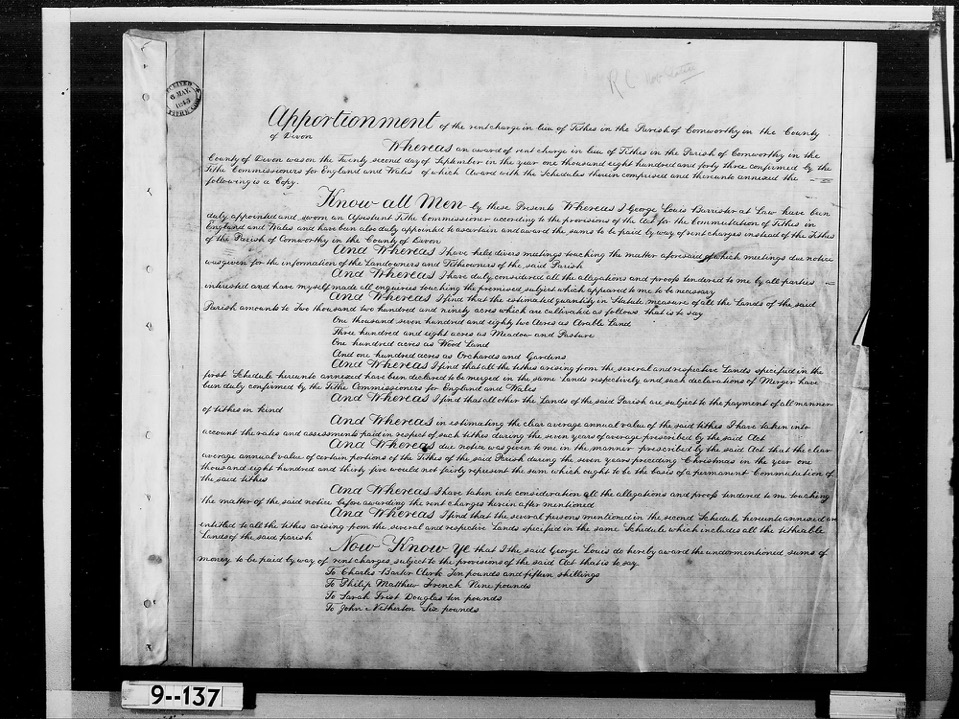 R C
RECEIVED
6 MAY.
1843
Apportionment of the rent charge in lieu of Tithes in the Parish of Cornworthy in the County
of Devon
Whereas an award of rent charge in lieu of Tithes in the Parish of Cornworthy in the
County of Devon was on the Twenty second day of September in the year one thousand eight hundred and forty three confirmed by the
Tithe Commissioners for England and Wales of which Award with the Schedules therein comprised and thereunto annexed the
following is a Copy.
Know all Men by these Presents Whereas I George Louis Barrister at Law have been
duly appointed and sworn an Assistant Tithe Commissioner according to the provisions of the Act for the Commutation of Tithes in
England and Wales and have been also duly appointed to ascertain and award the sums to be paid by way of rent charges instead of the Tithes
of the Parish of Cornworthy in the County of Devon
And Whereas I have held divers meetings touching the matter aforesaid of which meetings due notice
was given for the information of the Landowners and Titheowners of the said Parish
And Whereas I have duly considered all the allegations and proofs tendered to me by all parties
interested and have myself made all enquiries touching the premised subject which appeared to me to be necessary
And Whereas I find that the estimated quantity in Statute measure of all the Lands of the said
Parish amounts to Two thousand two hundred and ninety acres which are cultivated as follows that is to say
One thousand seven hundred and eighty two Acres as Arable Land
Three hundred and eight acres as Meadow and Pasture
One hundred acres as Wood Land
And one hundred acres as Orchards and Gardens
And Whereas I find that all the tithes arising from the several and respective Lands specified in the
first Schedule hereunto annexed have been declared to be merged in the same Lands respectively and such declarations of Merger have
been duly confirmed by the Tithe Commissioners for England and Wales
And Whereas I find that all other the Lands of the said Parish are subject to the payment of all manner
of tithes in kind
And Whereas in estimating the clear average annual value of the said tithes I have taken into
account the rates and assessments paid in respect of such tithes during the seven years of average prescribed by the said Act
And Whereas due notice was given to me in the manner prescribed by the said Act that the clear
average annual value of certain portions of the Tithes of the said Parish during the seven years preceding Christmas in the year one
thousand eight hundred and thirty five would not fairly represent the sum which ought to be the basis of a permanent Commutation of
the said tithes
And Whereas I have taken into consideration all the allegations and proofs tendered to me touching
the matter of the said notice before awarding the rent charges herein after mentioned
And Whereas I find that the several persons mentioned in the second Schedule hereunto annexed are
entitled to all the tithes arising from the several and respective Lands specified in the same Schedule which includes all the titheable
Lands of the said parish
Now Know Ye that I the said George Louis do hereby award the undermentioned sums of
money to be paid by way of rent charges subject to the provisions of the said Act that is to say
To Charles Barter Clerk Ten pounds and fifteen shillings
To Philip Matthew French Nine pounds
To Sarah Trist Douglas ten pounds
To John Netherton Six pounds
9--137